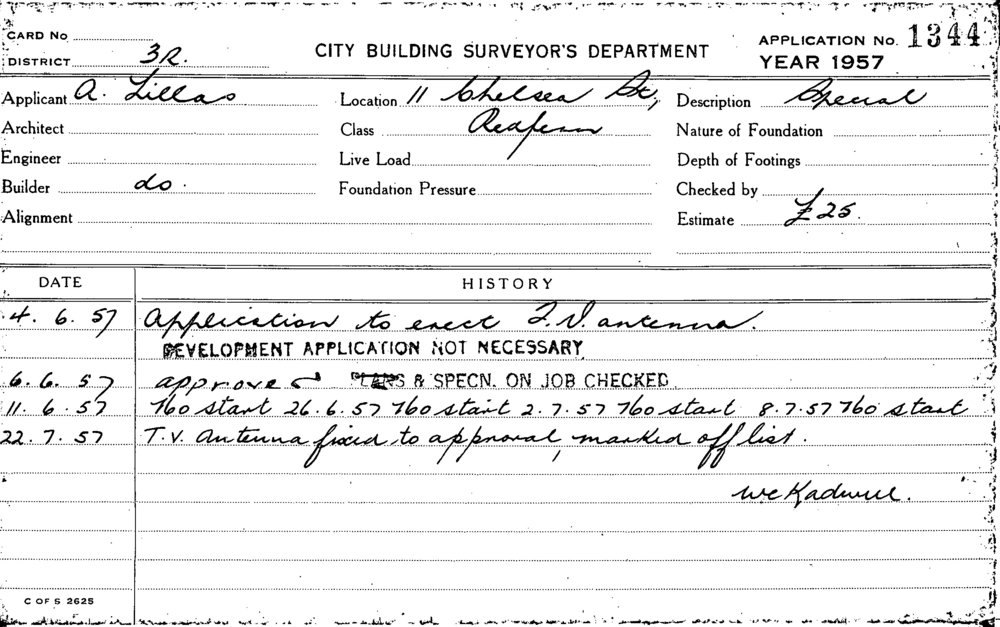 CARD No
DISTRICT 3R.
CITY BUILDING SURVEYOR'S DEPARTMENT
APPLICATION No. 1344
YEAR 1957
Applicant A. Lillas
Location 11 Chelsea St,
Description Special
Architect
Class Redfern
Nature of Foundation
Engineer
Live Load
Depth of Footings
Builder do.
Foundation Pressure
Checked by
Alignment
Estimate £25.
DATE HISTORY
4. 6. 57 Application to erect T.V. antenna.
DEVELOPMENT APPLICATION NOT NECESSARY
6. 6. 57 approved PLANS & SPECN. ON JOB CHECKED
11. 6. 57 no start 26. 6. 57 no start 2. 7. 57 no start 8. 7. 57 no start
22. 7. 57 T.V. Antenna fixed to approval, marked off list.
C OF S 2625